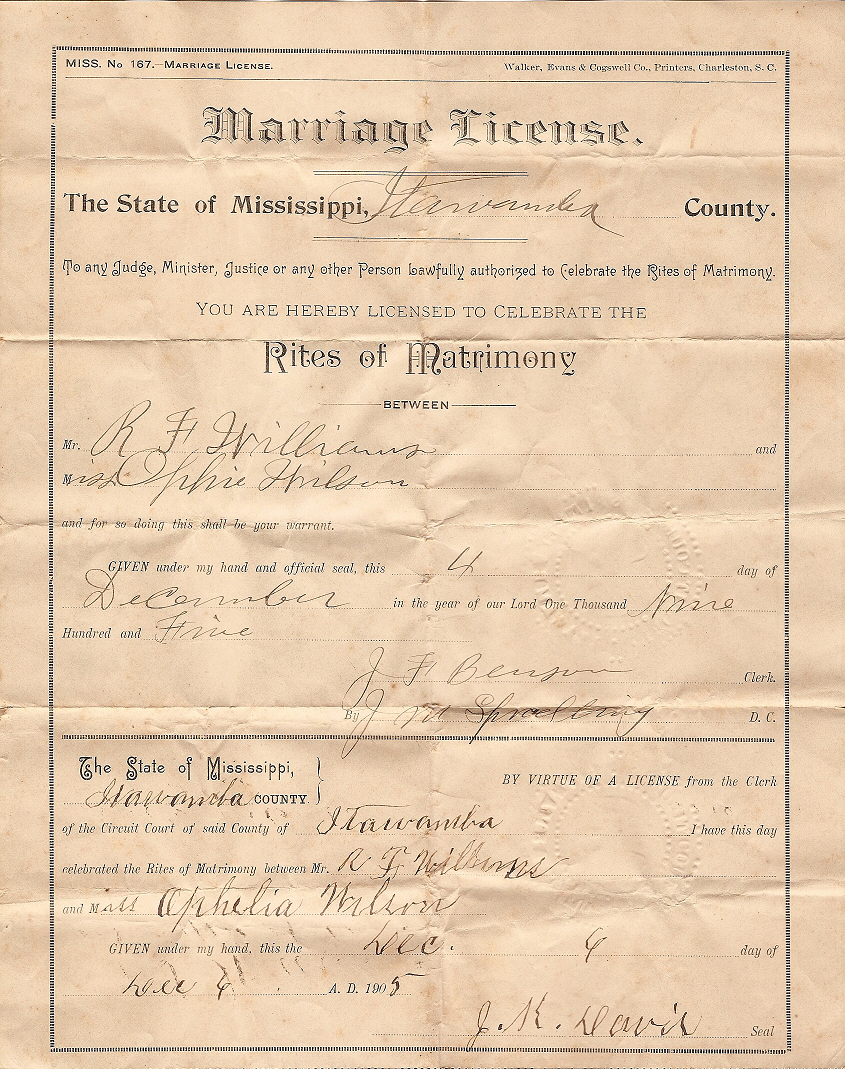 MISS. No 167.—MARRIAGE LICENSE. Walker, Evans & Cogswell Co., Printers, Charleston, S. C.
Marriage License.
The State of Mississippi, Itawamba County.
To any Judge, Minister, Justice or any other Person Lawfully authorized to Celebrate the Rites of Matrimony.
YOU ARE HEREBY LICENSED TO CELEBRATE THE
Rites of Matrimony
BETWEEN
Mr. R F Williams and
Miss Ophie Wilson
and for so doing this shall be your warrant.
GIVEN under my hand and official seal, this 4 day of
December in the year of our Lord One Thousand Nine
Hundred and Five
J F Benson Clerk.
By J M D. C.
The State of Mississippi,
Itawamba COUNTY.
BY VIRTUE OF A LICENSE from the Clerk
of the Circuit Court of said County of Itawamba I have this day
celebrated the Rites of Matrimony between Mr. R F Williams
and Miss Ophelia Wilson
GIVEN under my hand, this the Dec. 6 day of
Dec 6 A. D. 1905
J. K. Davis Seal